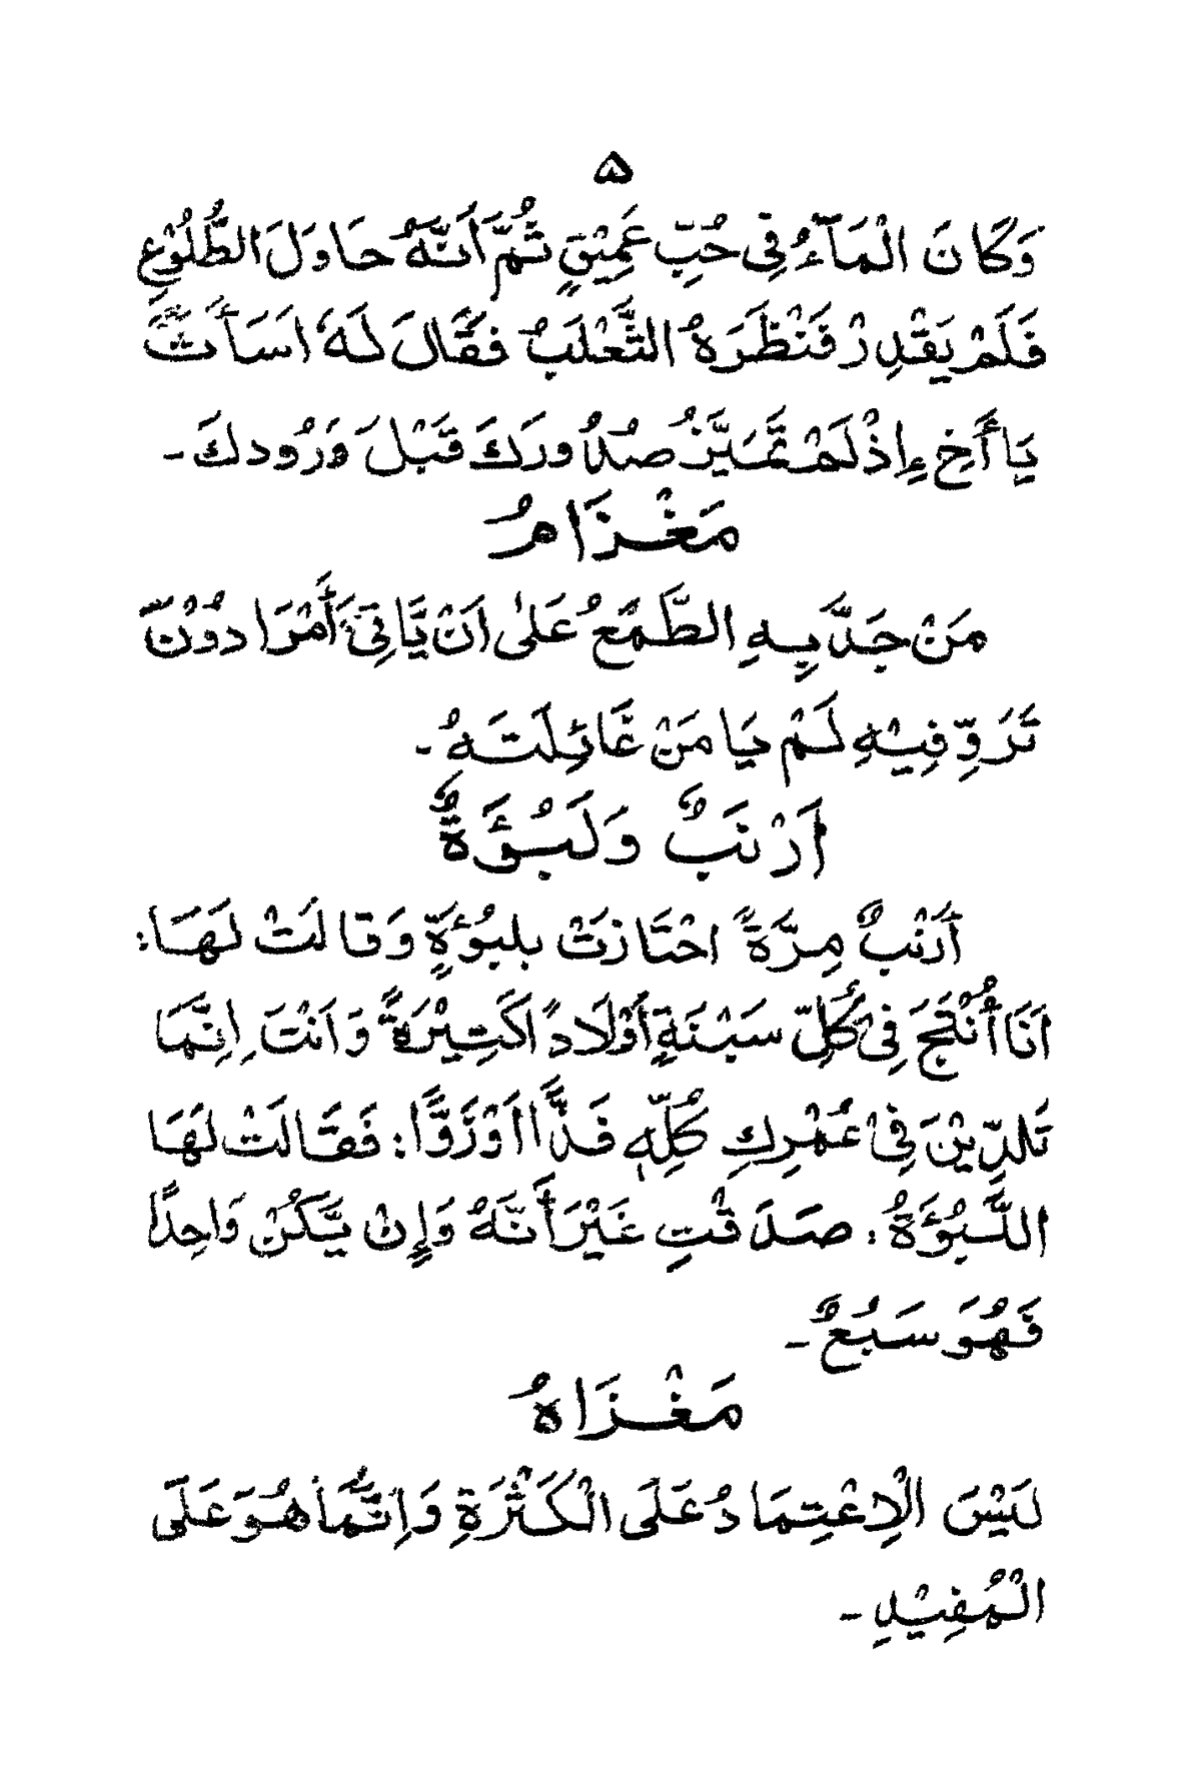 ۵
وَكَانَ الْمَآءُ فِي جُبٍّ عَمِيْقٍ ثُمَّ اَنَّهُ حَاوَلَ الطُّلُوْعِ
فَلَمْ يَقْدِرْ فَنْظَرَهُ الثَّعْلَبُ فَقَالَ لَهٗ اَسَأْتَ
يَا أَخِي إِذْ لَمْ تُمَيِّزْ صُدُورَكَ قَبْلَ وَرُودِكَ ۔
مَغْزَاهُ
مَنْ جَدَّ بِهِ الطَّمَعُ عَلىٰ اَنْ يَّاتِيَ أَمْرَا دُوْنَ
تَرَوِّ فِيْهِ لَمْ يَا مَنْ غَائِلَتَهُ ۔
اَرْنَبٌ وَلَبُؤَةٌ
أَرْنَبٌ مِرَّةً اجْتَازَتْ بلبُؤَةٍ وَقَالَتْ لَهَا:
اَنَا أُنْتِجُ فِيْ كُلِّ سَبْنَةٍ أَوْلَادً اكَثِيْرَةً وَاَنْتَ اِنَّمَا
تَلِدِيْنَ فِيْ عُمْرِكِ كُلِّهٖ فَذًّا اَوْزَوًّا: فَقَالَتْ لَهَا
اللَّبُؤَةُ: صَدَقْتِ غَيْرَ أَنَّهُ وَإِنْ يَّكُنْ وَاحِدًا
فَهُوَ سَبُعٌ ۔
مَغْزَاهُ
لَيْسَ الْاِعْتِمَادُ عَلَى الْكَثْرَةِ وَاِنَّمَا هُوَ عَلَى
الْمُفِيْدِ ۔